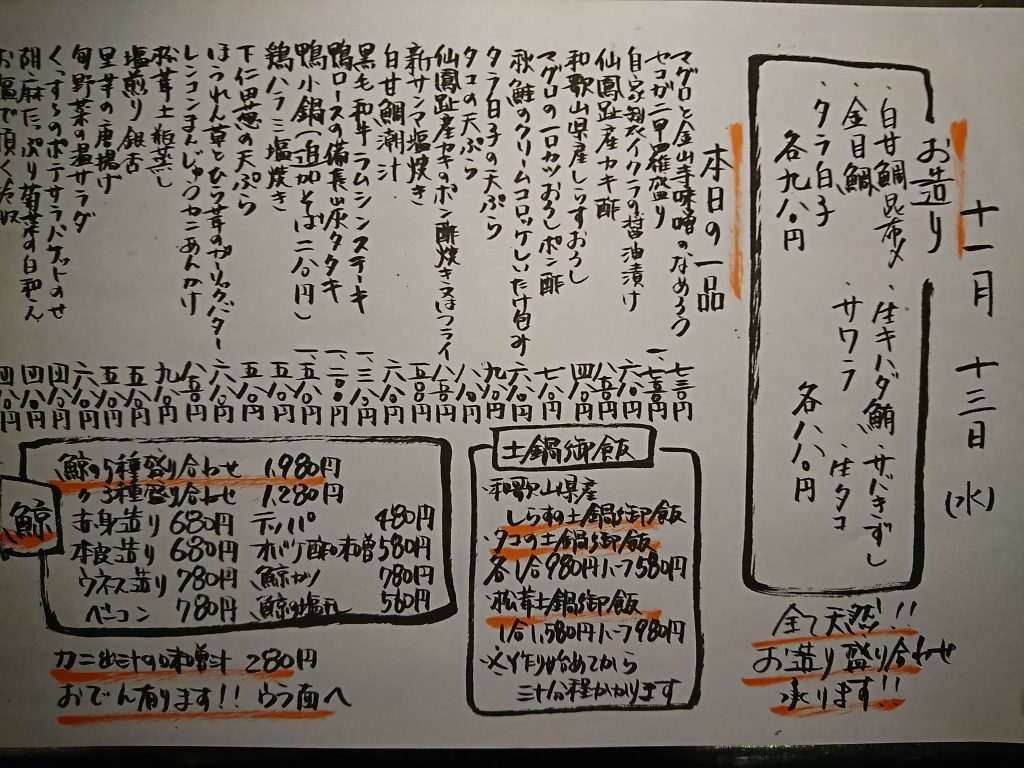 十一月 十三日 (水)
お造り
・白甘鯛昆布〆 ・生キハダ鮪 ・サバきずし
・金目鯛 ・サワラ ・生タコ
・タラ白子
各九八〇円 各八八〇円
全て天然!!
お造り盛り合わせ
承ります!!
本日の一品
マグロと金山寺味噌のなめろう 七三〇円
セコガニ甲羅盛り 一、七五〇円
自家製イクラの醤油漬け 六八〇円
仙鳳趾産カキ酢 八五〇円
和歌山県産しらすおろし 四八〇円
マグロの一口カツおろしポン酢 七八〇円
秋鮭のクリームコロッケしいたけ包み 六八〇円
タラ白子の天ぷら 九八〇円
タコの天ぷら 八八〇円
仙鳳趾産カキのポン酢焼き又はフライ
新サンマ塩焼き
白甘鯛潮汁
黒毛和牛ラムシンステーキ
鴨ロースの備長炭タタキ
鴨小鍋(追加そば二八〇円)
鶏ハラミ塩焼き
下仁田葱の天ぷら
ほうれん草とひら茸のガーリックバター
レンコンまんじゅうカニあんかけ
松茸土瓶蒸し
塩煎り銀杏
里芋の唐揚げ
旬野菜の温サラダ
くずきりのポテサラバケットのせ
胡麻たっぷり菊菜の白和え
お塩で頂く
土鍋御飯
・和歌山県産
しらすの土鍋御飯
・タコの土鍋御飯
各1合980円ハーフ580円
・松茸土鍋御飯
1合1,580円ハーフ980円
※作り始めてから
三十分程かかります
鯨
鯨の5種盛り合わせ 1,980円
〃3種盛り合わせ 1,280円
赤身造り 680円 テッパ 480円
本皮造り 680円 オバケ酢味噌 580円
ウネス造り 780円 鯨カツ 780円
ベーコン 780円 鯨の塩 580円
カニ出汁の味噌汁 280円
おでん有ります!! ウラ面へ